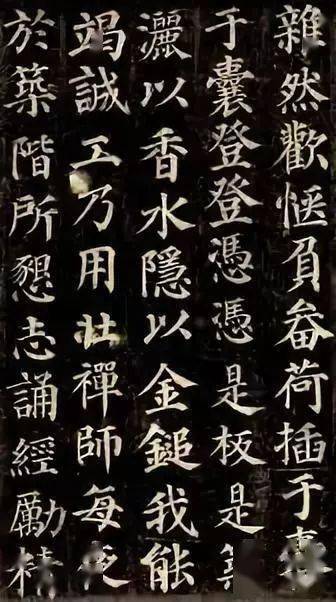 雜然歡愜負畚荷插于
于囊登登憑憑是板是
灑以香水隱以金鎚我能
竭誠工乃用壯禪師每夜
於築階所懇志誦經勵精